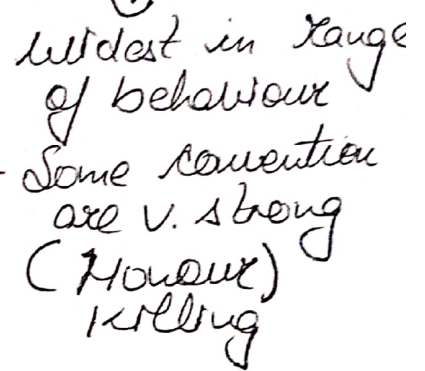 Widest in range
of behaviour
- Some convention
are v. strong
(Honour)
Killing